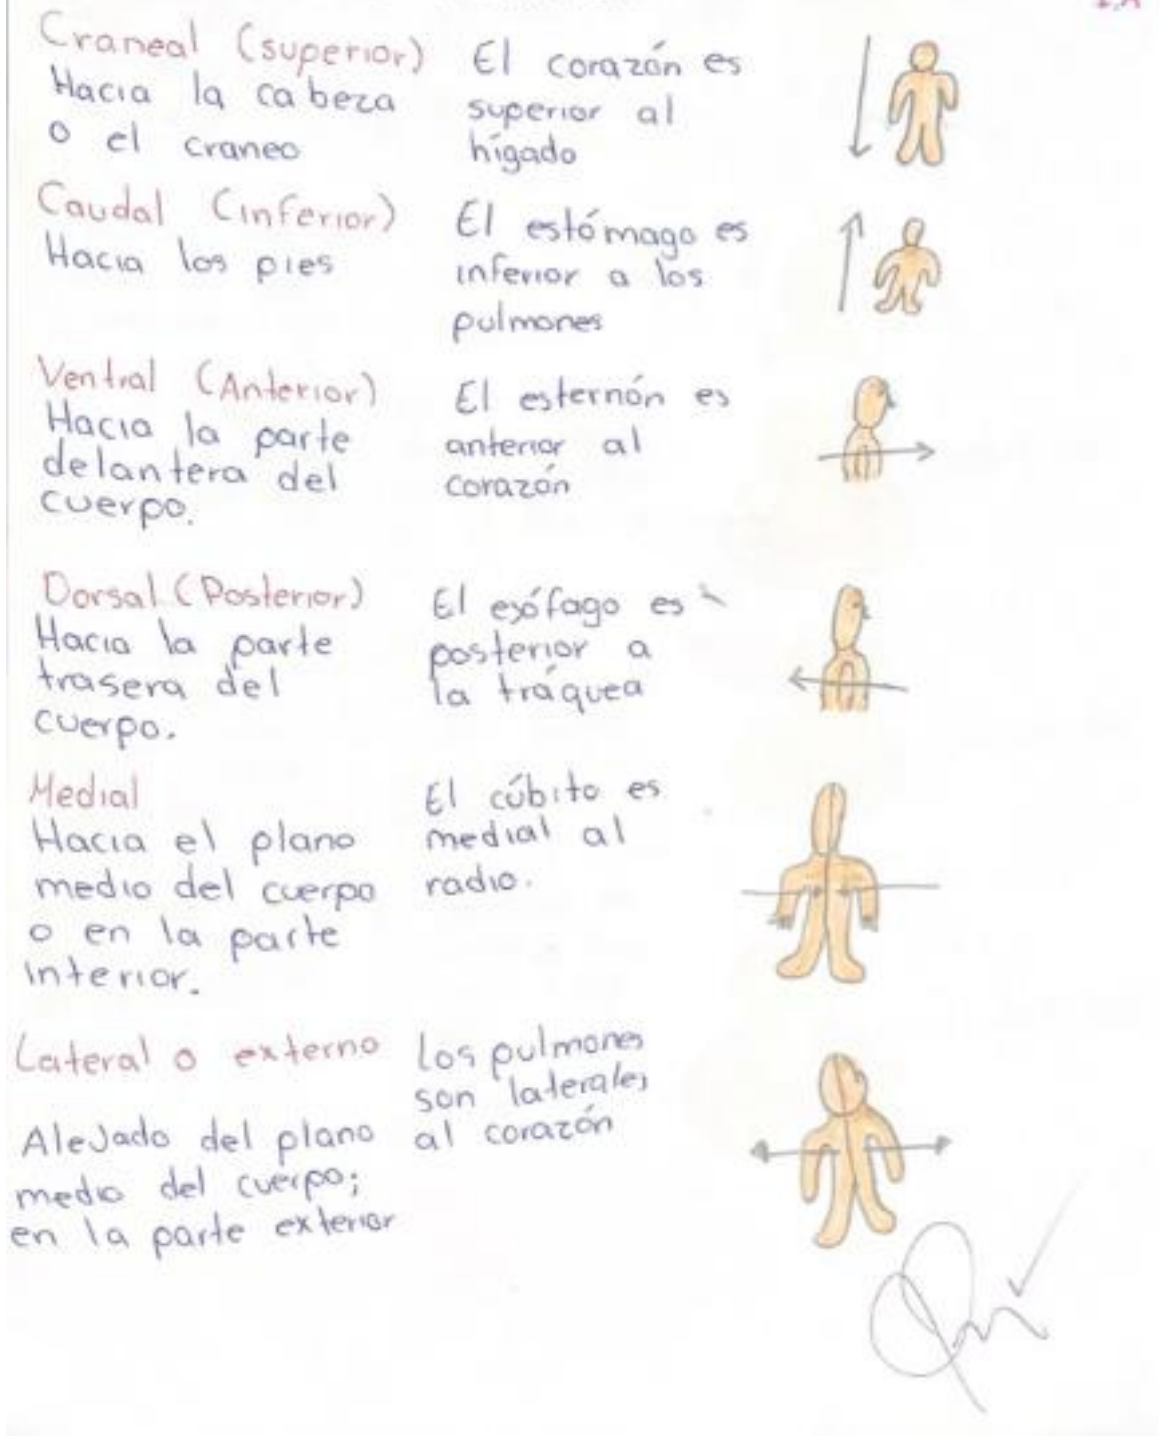 Craneal (superior)
Hacia la cabeza
o el craneo
El corazón es
superior al
hígado
Caudal (inferior)
Hacia los pies
El estómago es
inferior a los
pulmones
Ventral (Anterior)
Hacia la parte
delantera del
cuerpo.
El esternón es
anterior al
corazón
Dorsal (Posterior)
Hacia la parte
trasera del
cuerpo.
El esófago es
posterior a
la tráquea
Medial
Hacia el plano
medio del cuerpo
o en la parte
interior.
El cúbito es
medial al
radio.
Lateral o externo
Alejado del plano
medio del cuerpo;
en la parte exterior
los pulmones
son laterales
al corazón